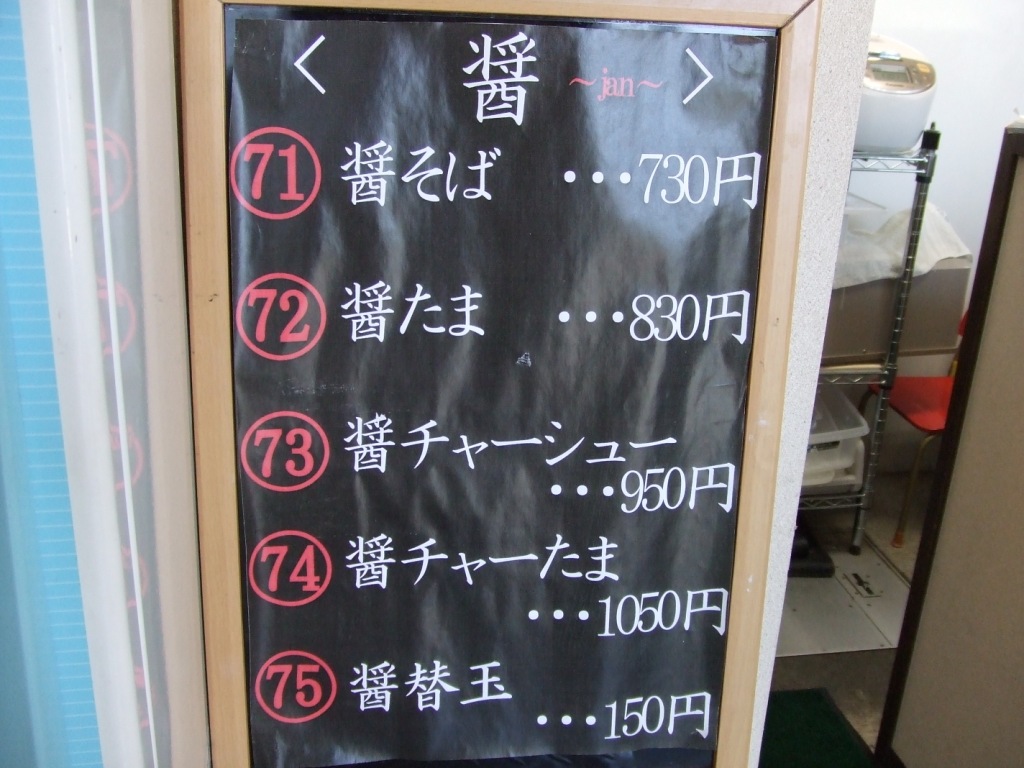 〈 醤 ～jan～ 〉
71 醤そば ・・・730円
72 醤たま ・・・830円
73 醤チャーシュー
・・・950円
74 醤チャーたま
・・・1050円
75 醤替玉
・・・150円